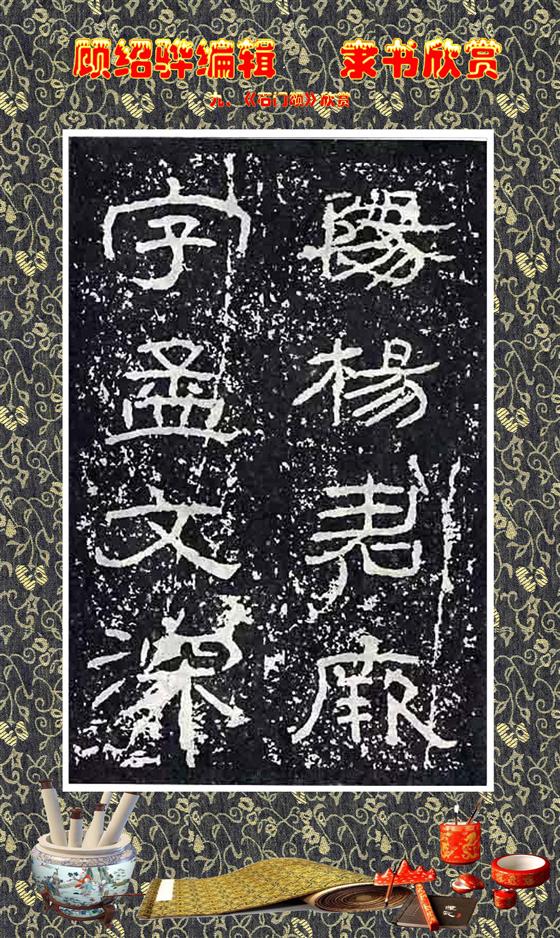 顾绍骅编辑 隶书欣赏
九、《石门颂》欣赏
陽楊君厥
字孟文深